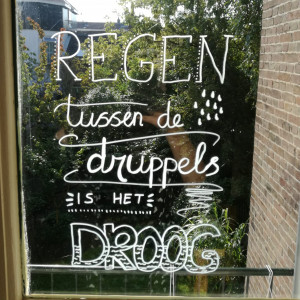 REGEN
tussen de
druppels
IS HET
DROOG